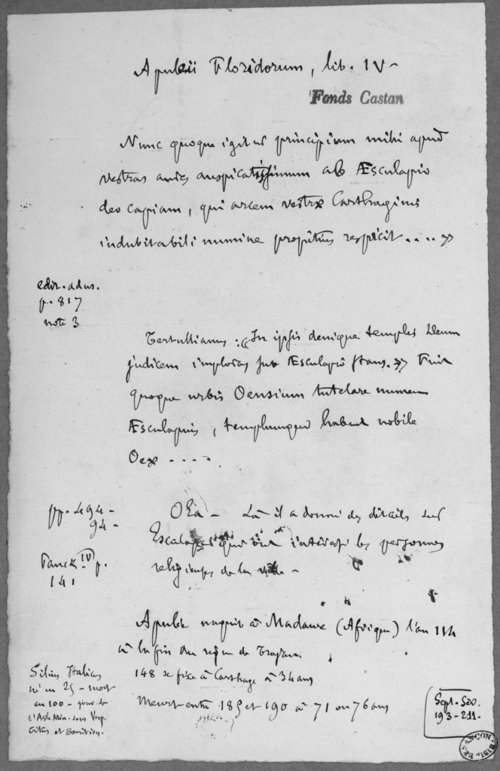 Apuleii Floridorum, lib. IV -
Fonds Castan
Nunc quoque igitur principium mihi apud
vestras aures auspicatissimum ab Æsculapio
deo capiam, qui arcem vestræ Carthaginis
indubitabili numine propitius respicit....»
edit. ad us.
p. 817
note 3
Tertullianus: «In ipsis denique templis Deum
judicem imploras sub Æsculapio stans.» Fuit
quoque urbis Oensium tutelare numen
Æsculapius, templumque habuit nobile
Oeæ ....
pp. 494-
94-
Panck. IV p.
141
OEa - Là il a donné des détails sur
Esculape qui intéresse les personnes
religieuses de la ville -
Apulée naquit à Madaure (Afrique) l'an 114
à la fin du règne de Trajan
148 se fixe à Carthage à 34 ans
Meurt entre 185 et 190 à 71 ou 76 ans
Silius Italicus
né en 25 - mort
en 100 -
l'Asie Min. sous Vesp.
Titus et Domitien.
Sept. Sev.
193-211-